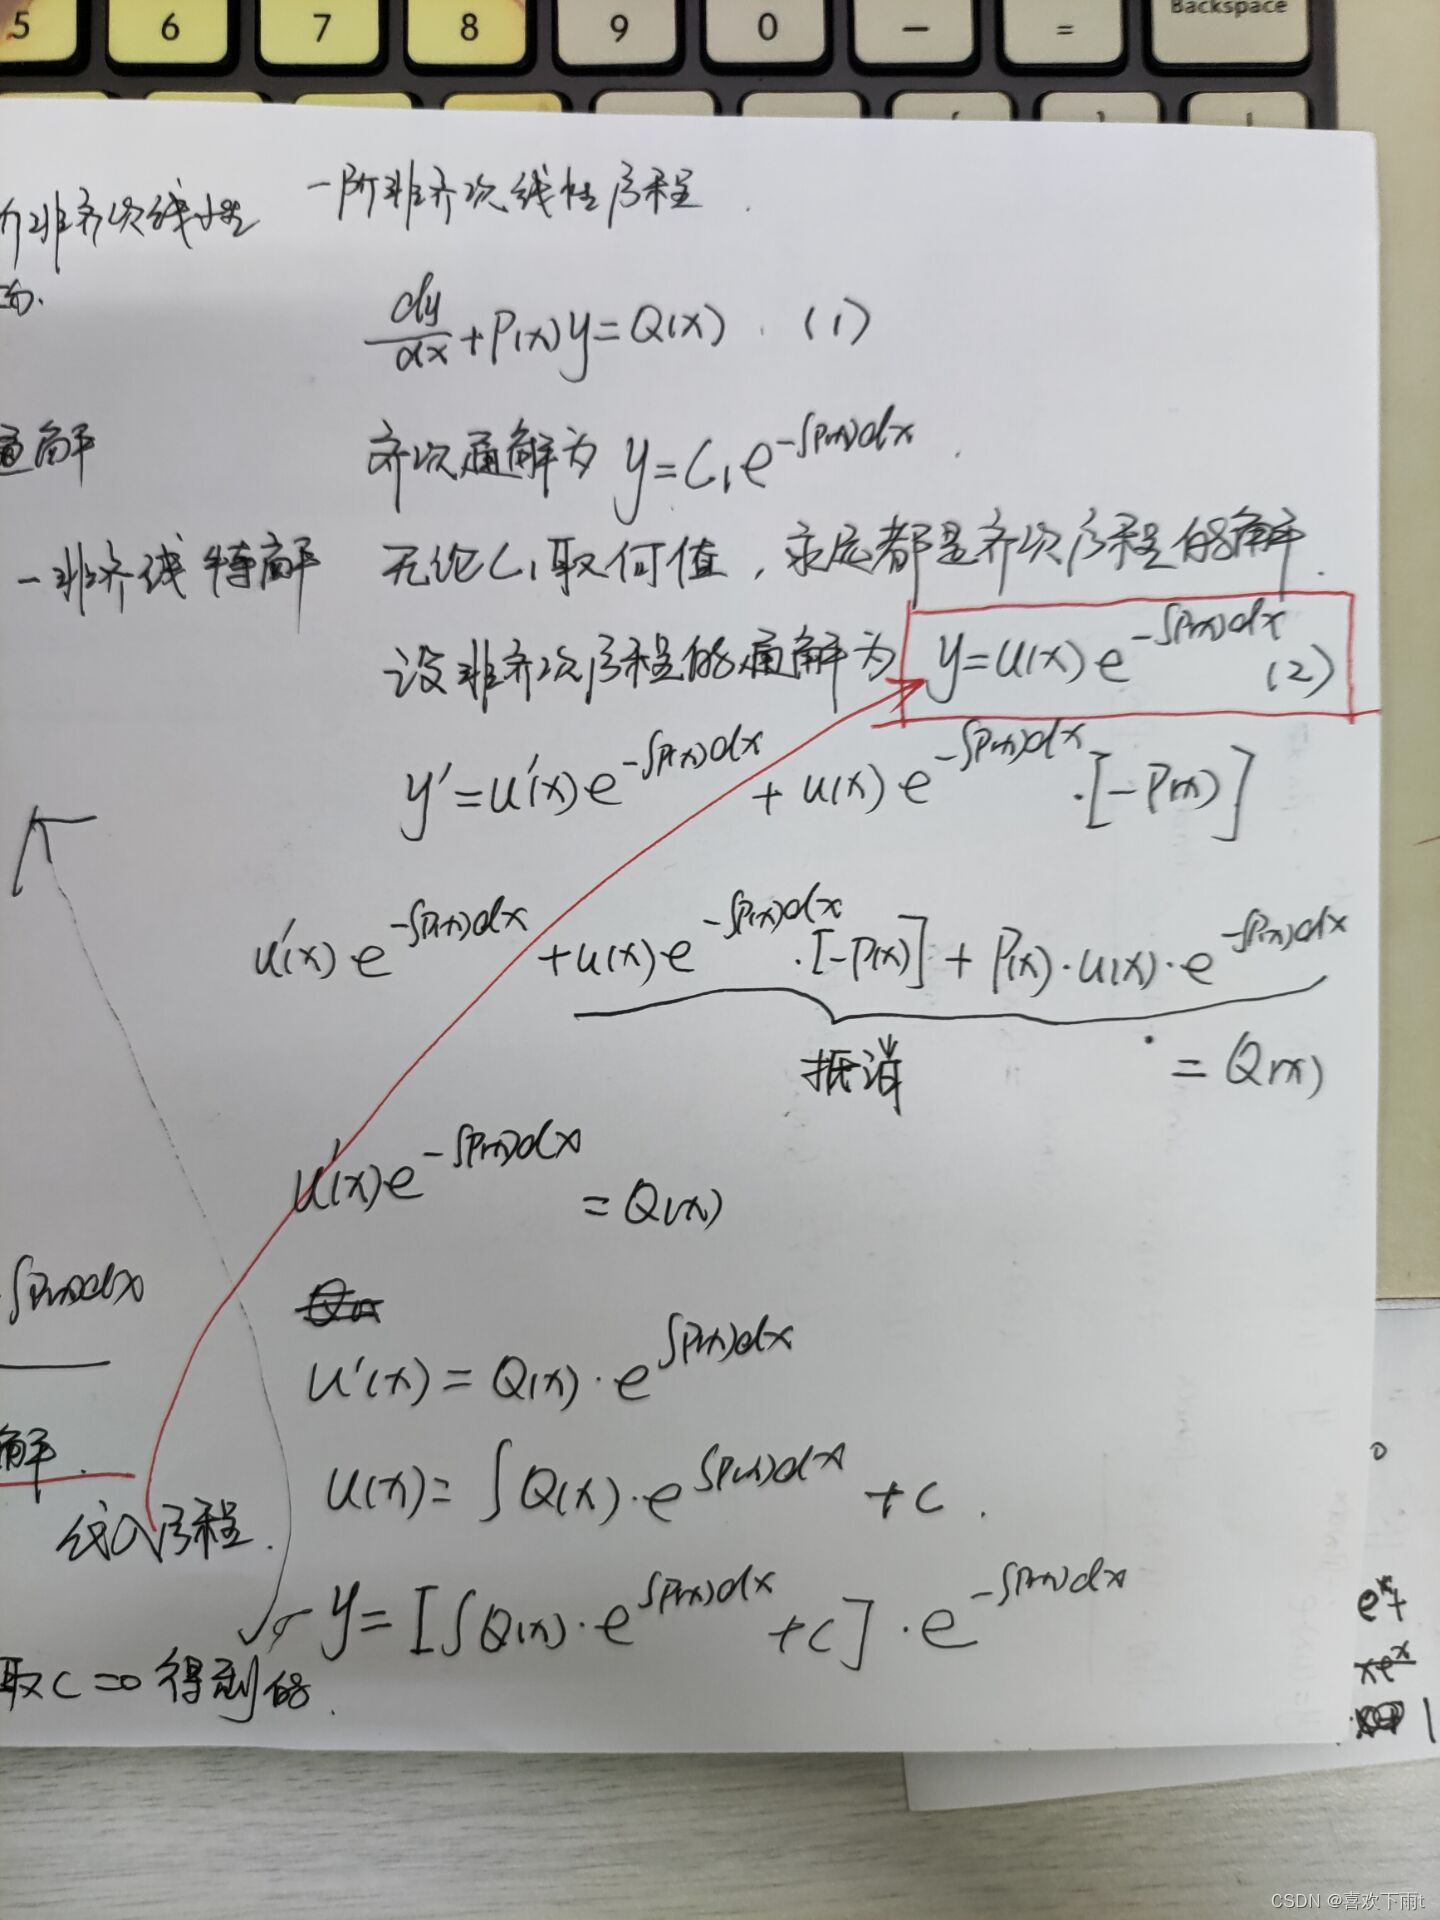 5 6 7 8 9 0 - = Backspace
一阶非齐次线性方程.
阶非齐次线性
dy/dx + P(x)y = Q(x). (1)
通解
齐次通解为 y = C₁e^{-∫P(x)dx}.
- 非齐线特解
无论C₁取何值, 永远都是齐次方程的解.
设非齐次方程的通解为 y = u(x)e^{-∫P(x)dx} (2)
y' = u'(x)e^{-∫P(x)dx} + u(x)e^{-∫P(x)dx}·[-P(x)]
u'(x)e^{-∫P(x)dx} + u(x)e^{-∫P(x)dx}·[-P(x)] + P(x)·u(x)·e^{-∫P(x)dx}
抵消
= Q(x)
u'(x)e^{-∫P(x)dx} = Q(x)
∫P(x)dx
u'(x) = Q(x)·e^{∫P(x)dx}
解.
u(x) = ∫Q(x)·e^{∫P(x)dx} + C.
方程.
y = [∫Q(x)·e^{∫P(x)dx} + C]·e^{-∫P(x)dx}
取C=0得到的.
e^x+
xe^x
1
CSDN @喜欢下雨t